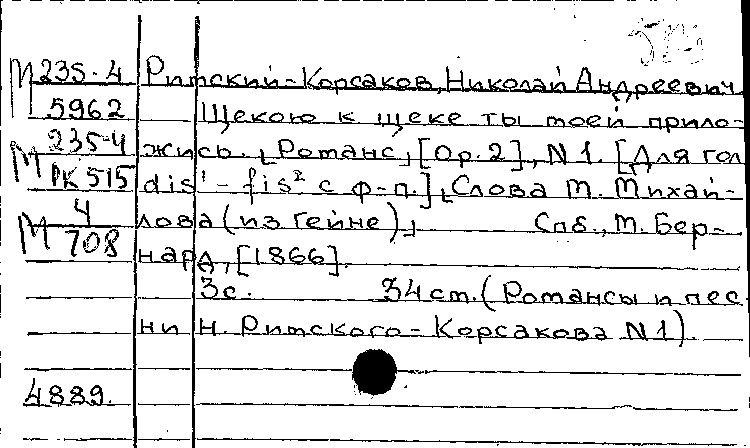 М 235-4 Римский-Корсаков, Николай Андреевич
5962 Щекою к щеке ты моей прило-
М 235-4 жись. [Романс], [Ор. 2], N 1. [Для гол
РК 515 dis¹ - fis² с ф-п.] [Слова М. Михай-
М 4 лова (из Гейне)] Спб., М. Бер-
708 нард, [1866].
3с. 34 см. (Романсы и пес
ни Н. Римского-Корсакова N 1).
4889.